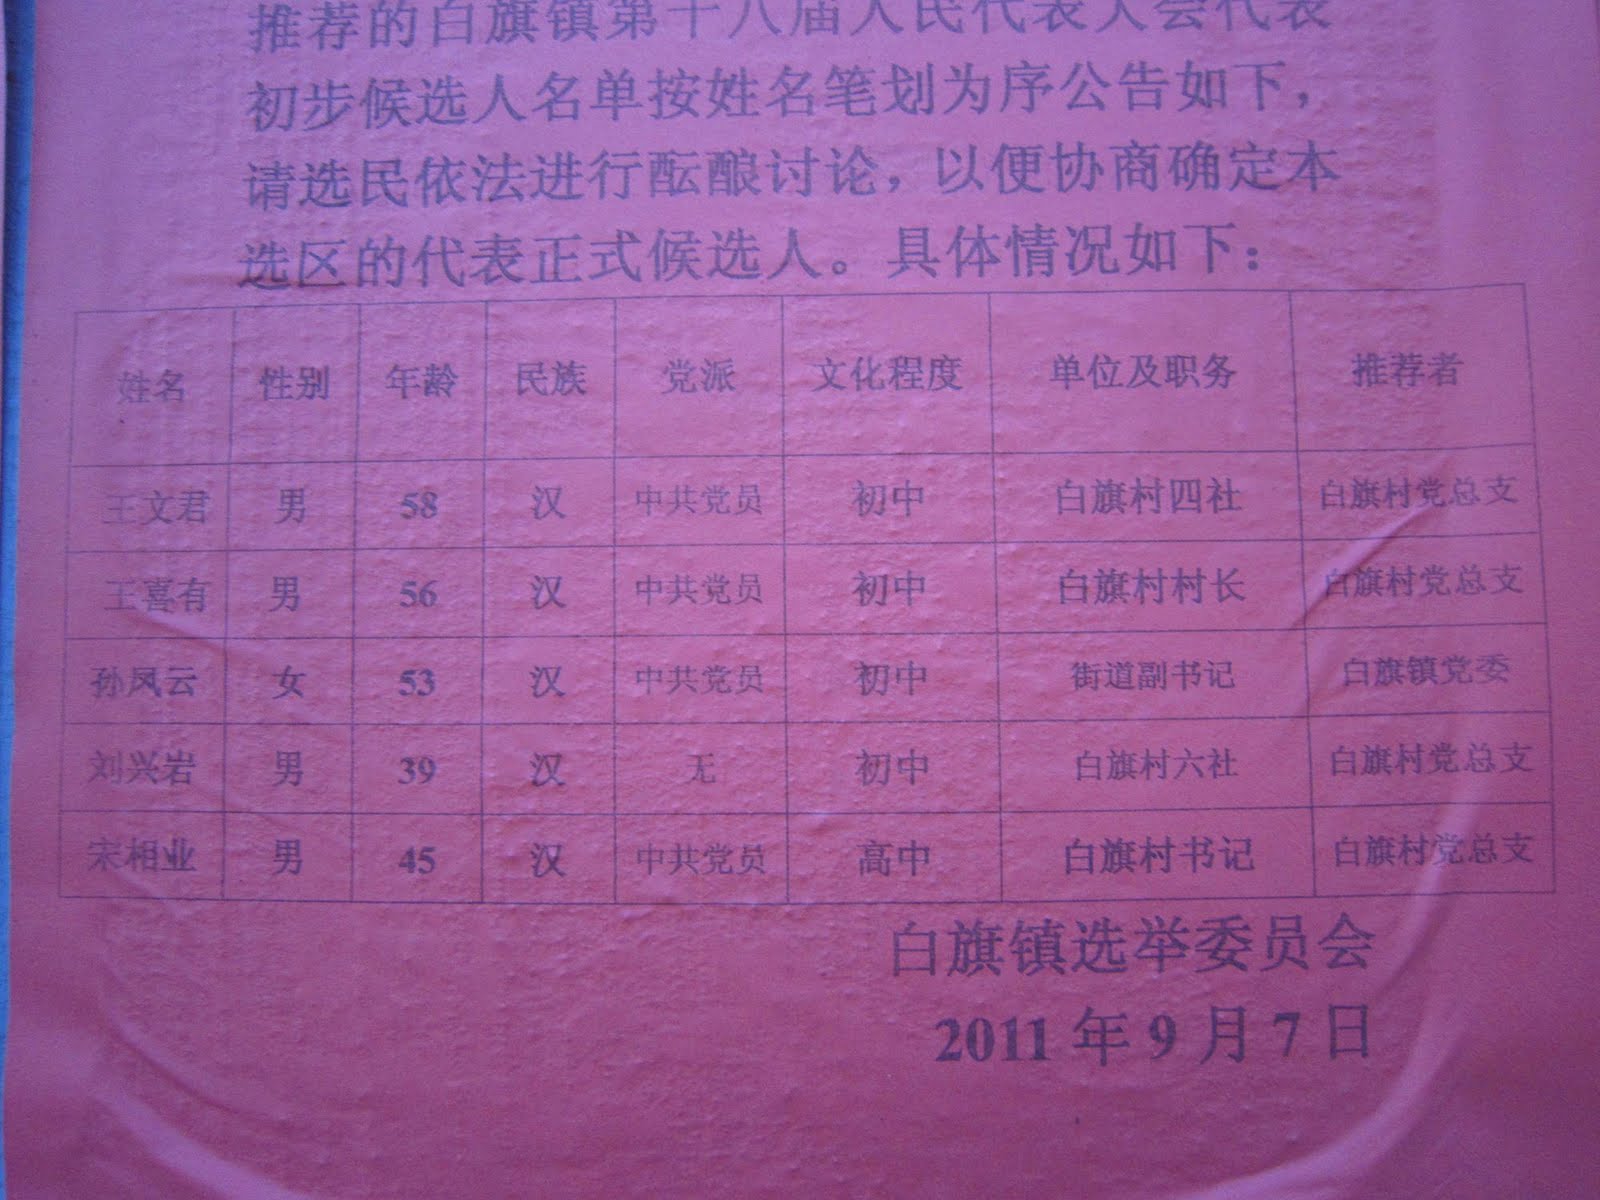 推荐的白旗镇第十八届人民代表大会代表
初步候选人名单按姓名笔划为序公告如下，
请选民依法进行酝酿讨论，以便协商确定本
选区的代表正式候选人。具体情况如下：
姓名 性别 年龄 民族 党派 文化程度 单位及职务 推荐者
王文君 男 58 汉 中共党员 初中 白旗村四社 白旗村党总支
王喜有 男 56 汉 中共党员 初中 白旗村村长 白旗村党总支
孙凤云 女 53 汉 中共党员 初中 街道副书记 白旗镇党委
刘兴岩 男 39 汉 无 初中 白旗村六社 白旗村党总支
宋相业 男 45 汉 中共党员 高中 白旗村书记 白旗村党总支
白旗镇选举委员会
2011 年 9 月 7 日